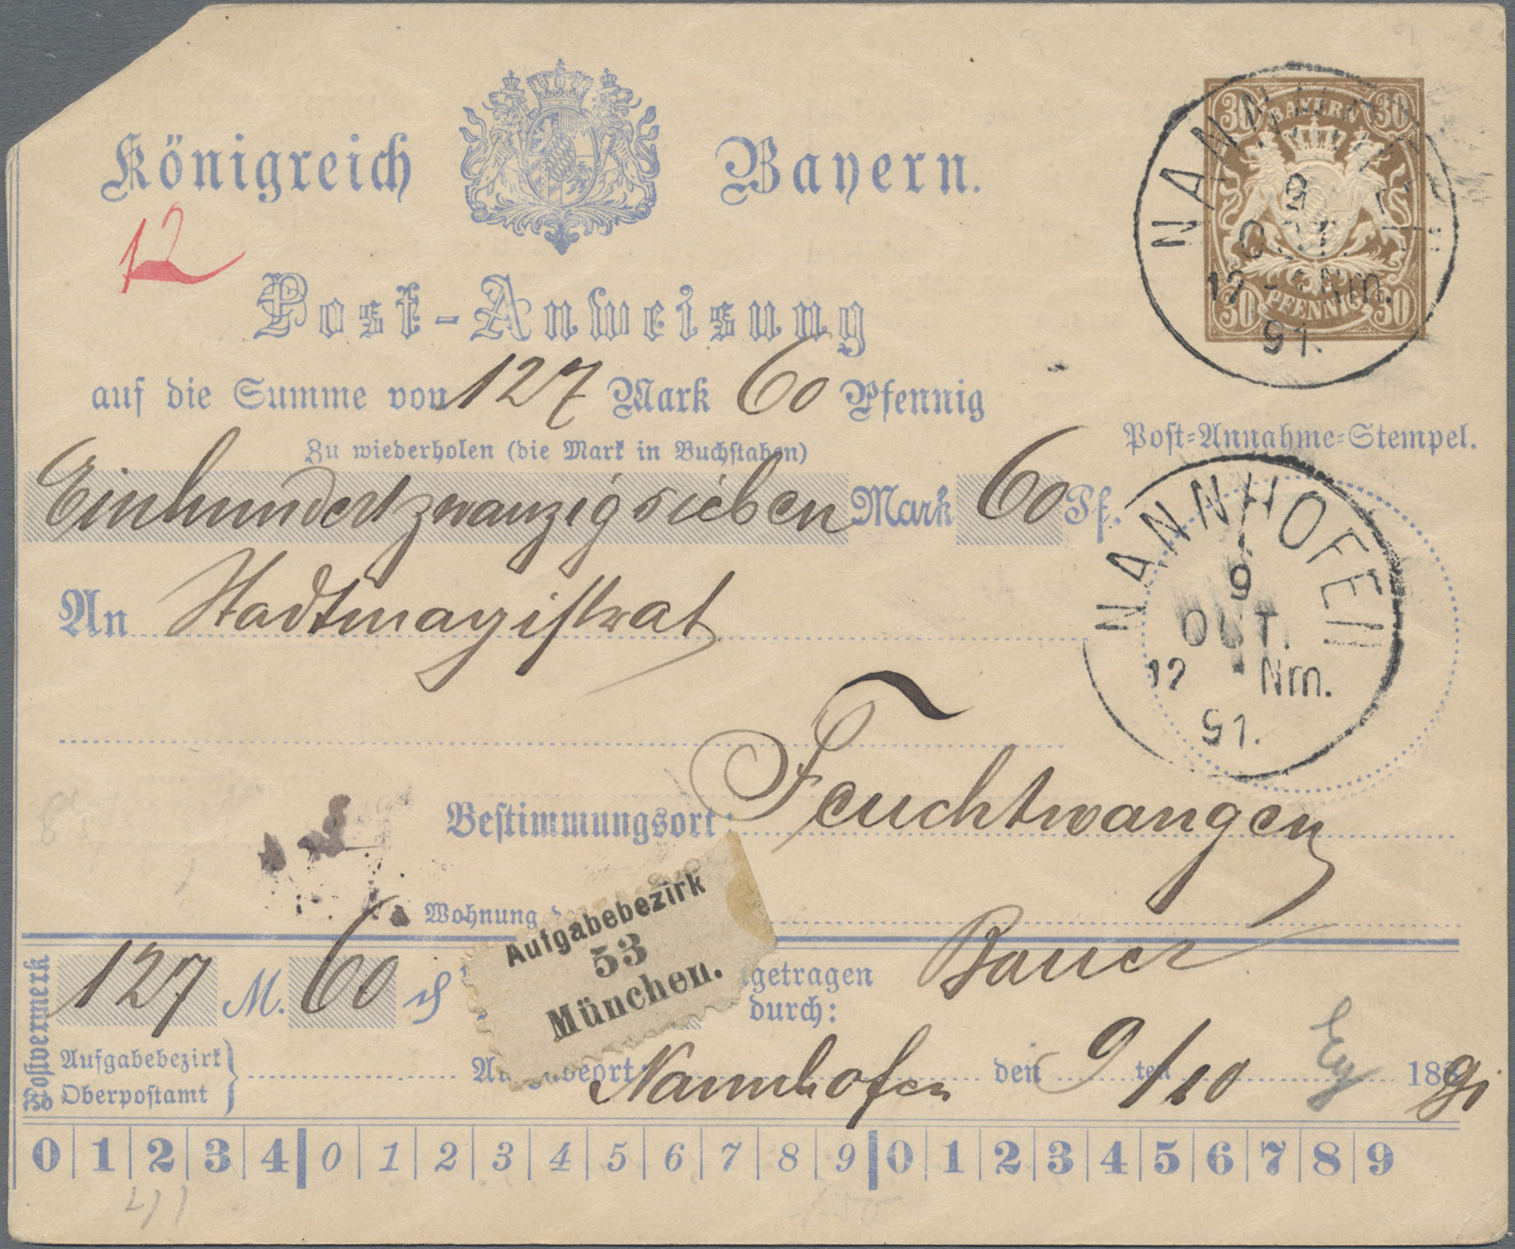 Königreich Bayern.
30 BAYERN 30
30 PFENNIG 30
9
OCT.
12 Nm.
91.
12
Post-Anweisung
auf die Summe von 127 Mark 60 Pfennig
Post-Annahme-Stempel.
Zu wiederholen (die Mark in Buchstaben)
Einhundertzwanzigsieben Mark 60 Pf.
NANNHOFEN
9
OCT.
12 Nm.
91.
An Stadtmagistrat
Bestimmungsort: Feuchtwangen
Wohnung
Aufgabebezirk
53
München.
Postvermerk
127 M. 60 ₰
getragen durch: Bauer
Aufgabebezirk
Oberpostamt
Nannhofen den 9ten/10 1891
0 1 2 3 4 0 1 2 3 4 5 6 7 8 9 0 1 2 3 4 5 6 7 8 9